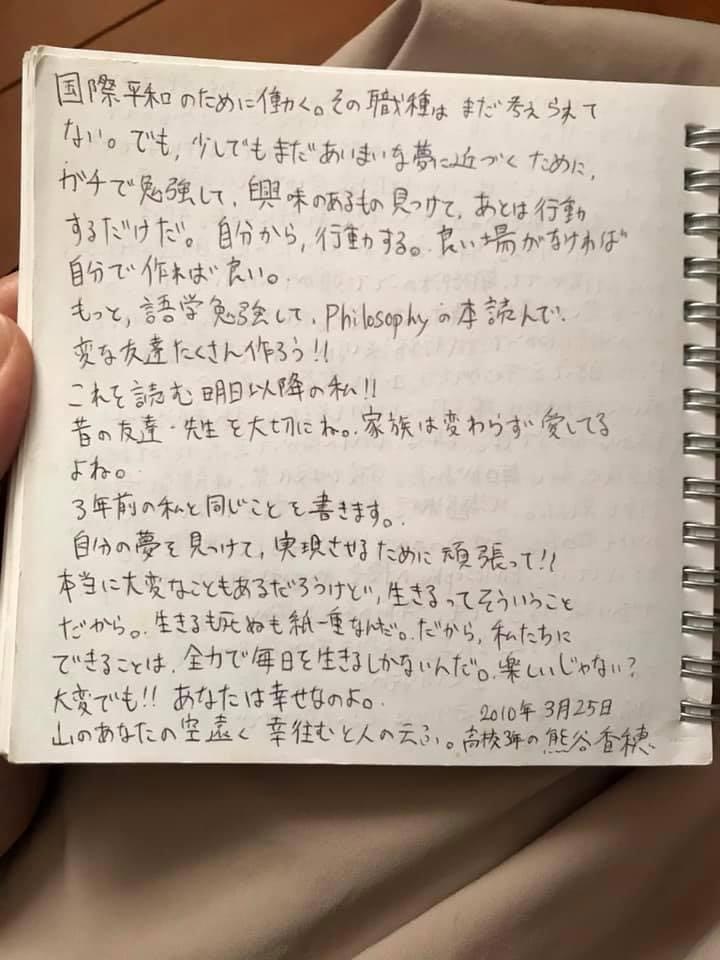 国際平和のために働く。その職種はまだ考えられて
ない。でも、少しでもまだあいまいな夢に近づくために、
ガチで勉強して、興味のあるもの見つけて、あとは行動
するだけだ。自分から、行動する。良い場がなければ
自分で作れば良い。
もっと、語学勉強して、Philosophyの本読んで、
変な友達たくさん作ろう!!
これを読む明日以降の私!!
昔の友達・先生を大切にね。家族は変わらず愛してる
よね。
3年前の私と同じことを書きます。
自分の夢を見つけて、実現させるために頑張って!!
本当に大変なこともあるだろうけど、生きるってそういうこと
だから。生きるも死ぬも紙一重なんだ。だから、私たちに
できることは、全力で毎日を生きるしかないんだ。楽しいじゃない?
大変でも!! あなたは幸せなのよ。
2010年3月25日
山のあなたの空遠く 幸住むと人の云ふ。高校3年の熊谷香穂